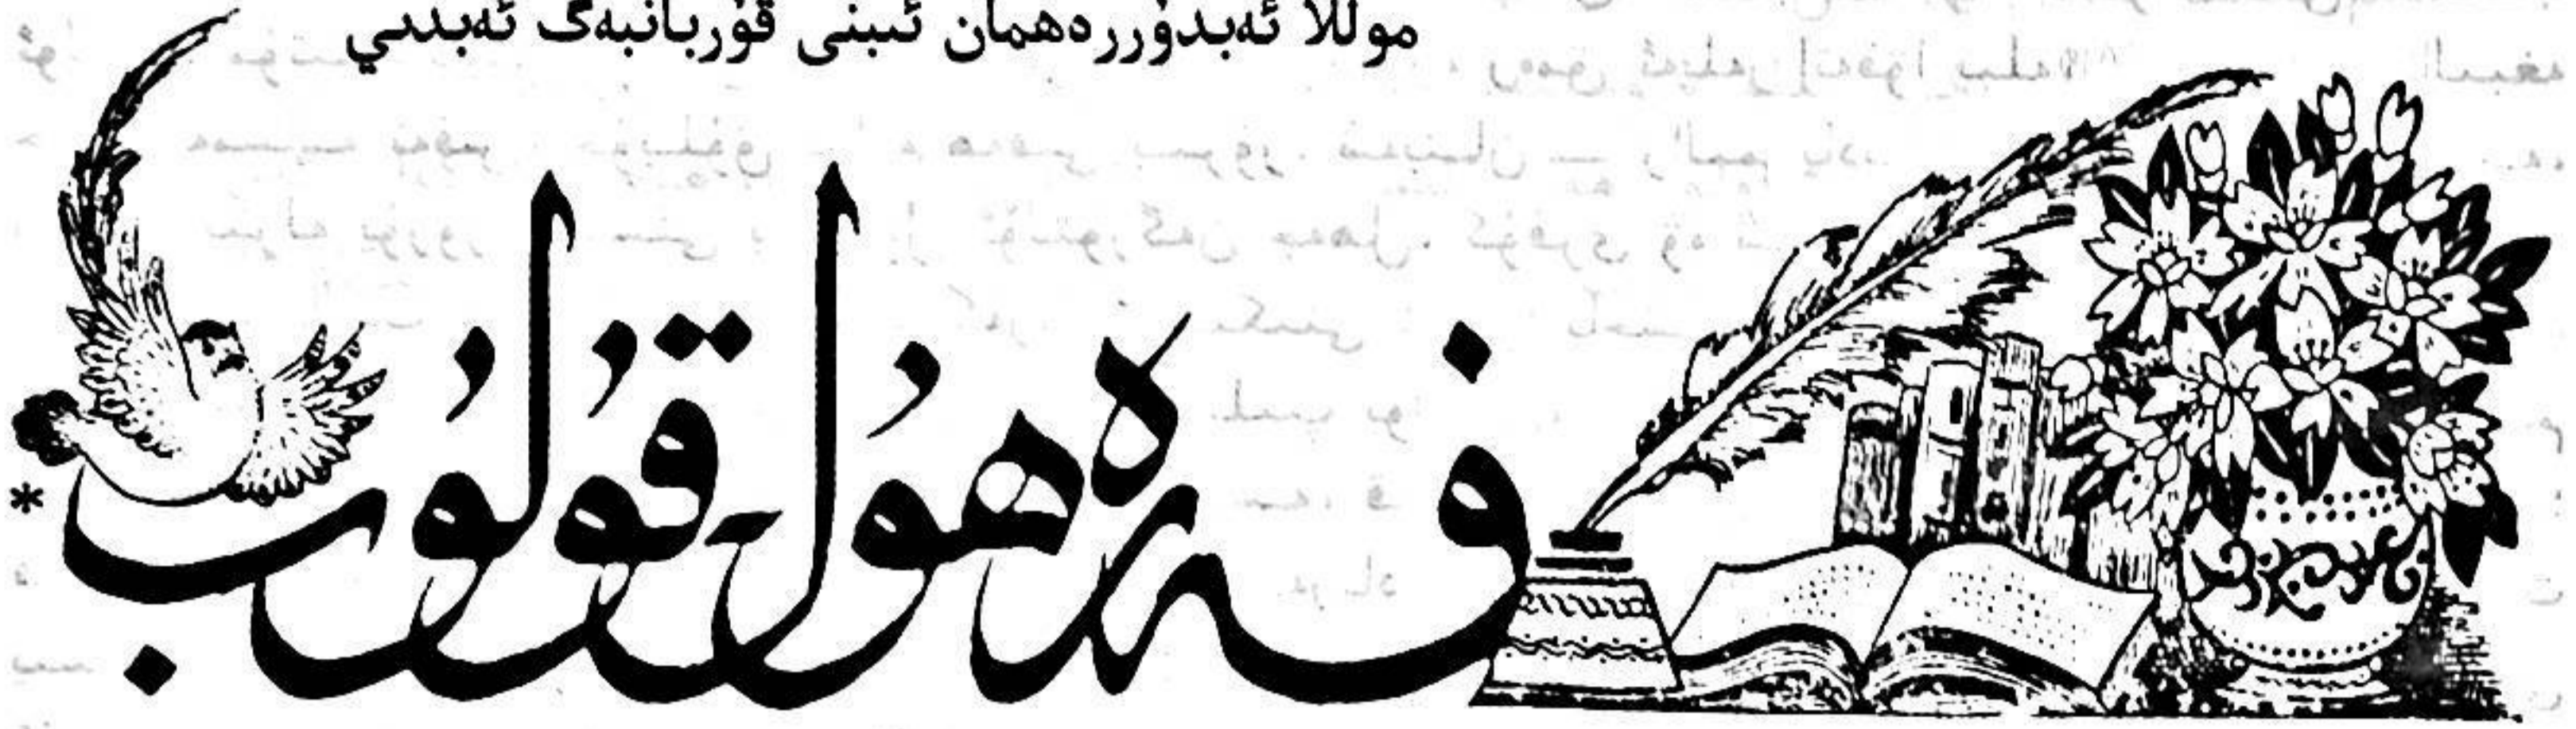 موللا ئەبدۇررەھمان ئىبنى قۇربانبەگ ئەبدىي
فەرەھۇل قۇلۇب *